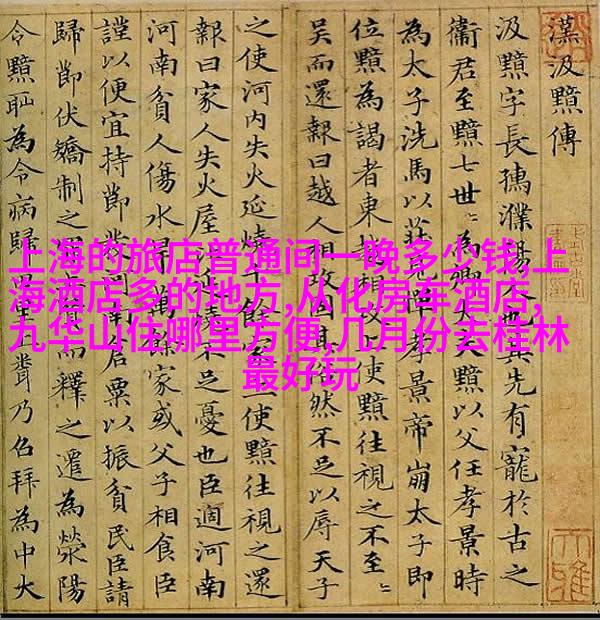 上海的旅店普通间一晚多少钱,上
海酒店多的地方,从化房车酒店,
九华山住哪里方便,几月份去桂林
最好玩
漢汲黯傳
汲黯字長孺濮陽也其先有寵於古之
衞君至黯七世〻為卿大夫黯以父任孝景時
為太子洗馬以莊見憚孝景帝崩太子即
位黯為謁者東越相攻上使黯往視之不至
吳而還報曰越人相攻固其俗然不足以辱天子
之使河内失火延燒千餘家上使黯往視之還
報曰家人失火屋比延燒不足憂也臣過河南
河南貧人傷水旱萬餘家或父子相食臣
謹以便宜持節發河南倉粟以振貧民臣請
歸節伏矯制之而釋之遷為滎陽
令黯恥為令病歸田里上乃召拜為中大